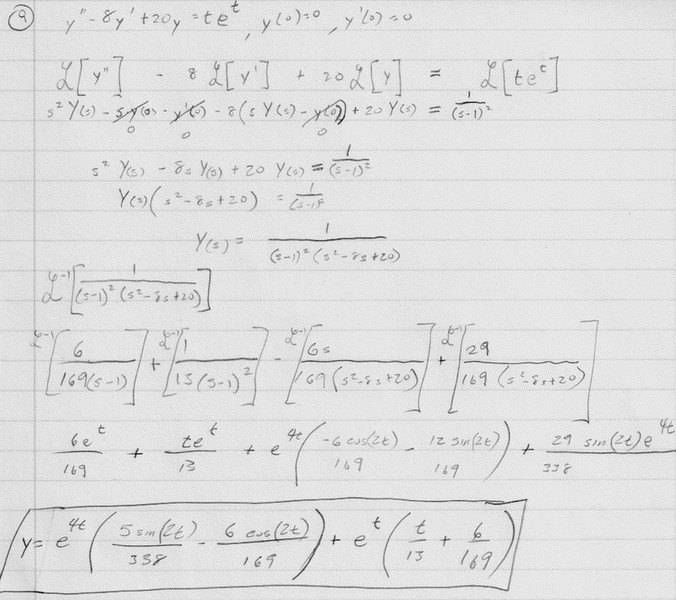 9 y'' - 8y' + 20y = te^t, y(0)=0, y'(0)=0
ℒ[y''] - 8ℒ[y'] + 20ℒ[y] = ℒ[te^t]
s² Y(s) - sy(0) - y'(0) - 8(sY(s) - y(0)) + 20Y(s) = 1/(s-1)²
0 0 0
s² Y(s) - 8s Y(s) + 20 Y(s) = 1/(s-1)²
Y(s)(s²-8s+20) = 1/(s-1)²
Y(s) = 1/((s-1)²(s²-8s+20))
ℒ⁻¹[1/((s-1)²(s²-8s+20))]
ℒ⁻¹[6/(169(s-1))] + ℒ⁻¹[1/(13(s-1)²)] - ℒ⁻¹[6s/(169(s²-8s+20))] + ℒ⁻¹[29/(169(s²-8s+20))]
6e^t/169 + te^t/13 + e^4t(-6cos(2t)/169 - 12sin(2t)/169) + 29 sin(2t)e^4t/338
y = e^4t(5sin(2t)/338 - 6cos(2t)/169) + e^t(t/13 + 6/169)